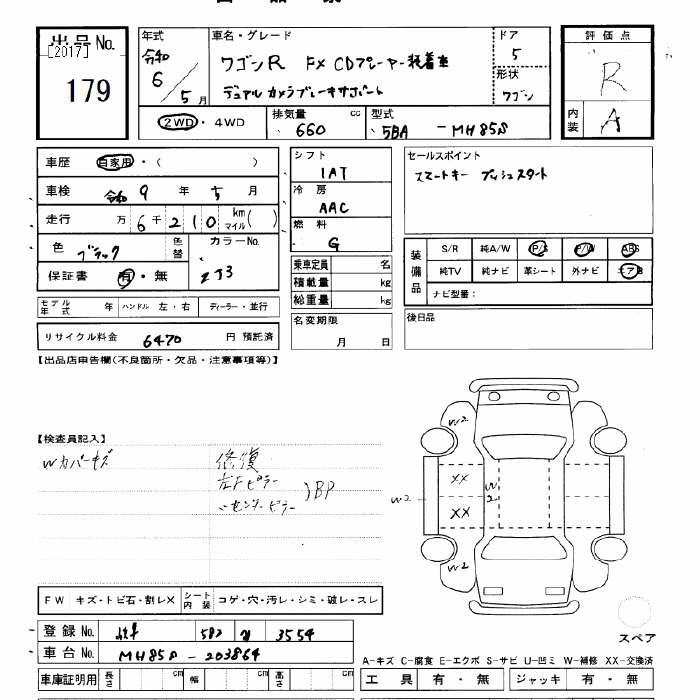 出品No.
[2017]
179
年式
令和
6 / 5 月
車名・グレード
ワゴンR FX CDプレーヤー装着車
デュアルカメラブレーキサポート
ドア
5
形状
ワゴン
2WD ・ 4WD
排気量 cc
660
型式
5BA - MH85S
評価点
R
内装
A
車歴 自家用・( )
車検 令和 9 年 5 月
走行 万 6 千 2 1 0 km マイル ( )
色 ブラック 色替
カラーNo.
ZJ3
保証書 有・無
シフト
IAT
冷房
AAC
燃料
G
乗車定員 名
積載量 kg
総重量 kg
セールスポイント
スマートキー プッシュスタート
装備品
S/R 純A/W P/S P/W ABS
純TV 純ナビ 革シート 外ナビ エアB
ナビ型番：
モデル年式 年 ハンドル 左・右 ディーラー・並行
リサイクル料金 6470 円 預託済
名変期限
月 日
後日品
【出品店申告欄(不良箇所・欠品・注意事項等)】
【検査員記入】
Wカバーキズ
修復
左Fピラー
〃センターピラー
BP
W2
XX
W2
W2
XX
W2
FW キズ・トビ石・割レX シート内装 コゲ・穴・汚レ・シミ・破レ・スレ
スペア
登録No. 582 3554
車台No. MH85S - 203864
A-キズ C-腐食 E-エクボ S-サビ U-凹ミ W-補修 XX-交換済
車庫証明用 長さ cm 幅 cm 高さ cm
工具 有・無 ジャッキ 有・無